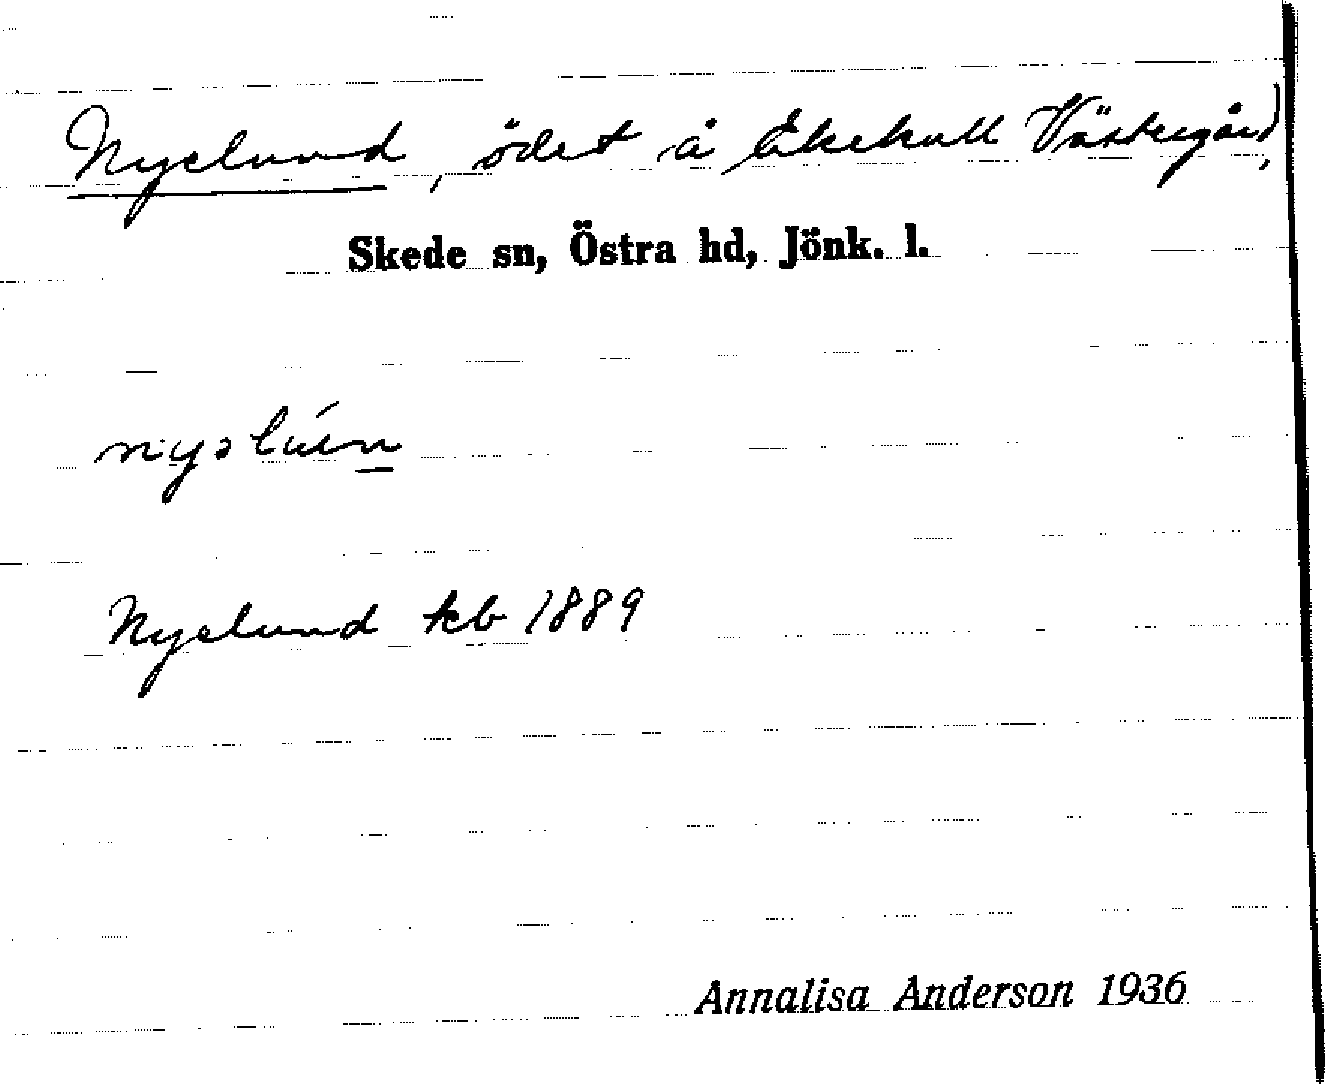 Nyelund, ödet å Ekekull Västergård,
Skede sn, Östra hd, Jönk. l.
Nyelund kb 1889
Annalisa Anderson 1936